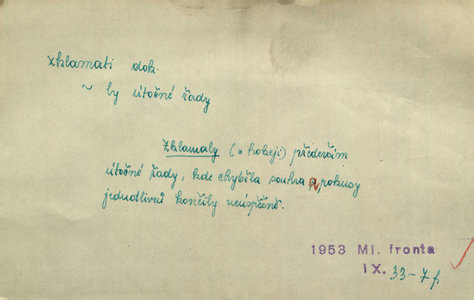 zklamati dok.
~ ly útočné řady
Zklamaly (v hokeji) především
útočné řady, kde chyběla souhra a pokusy
jednotlivců končily neúspěšně.
1953 Ml. fronta
IX. 33-7 p